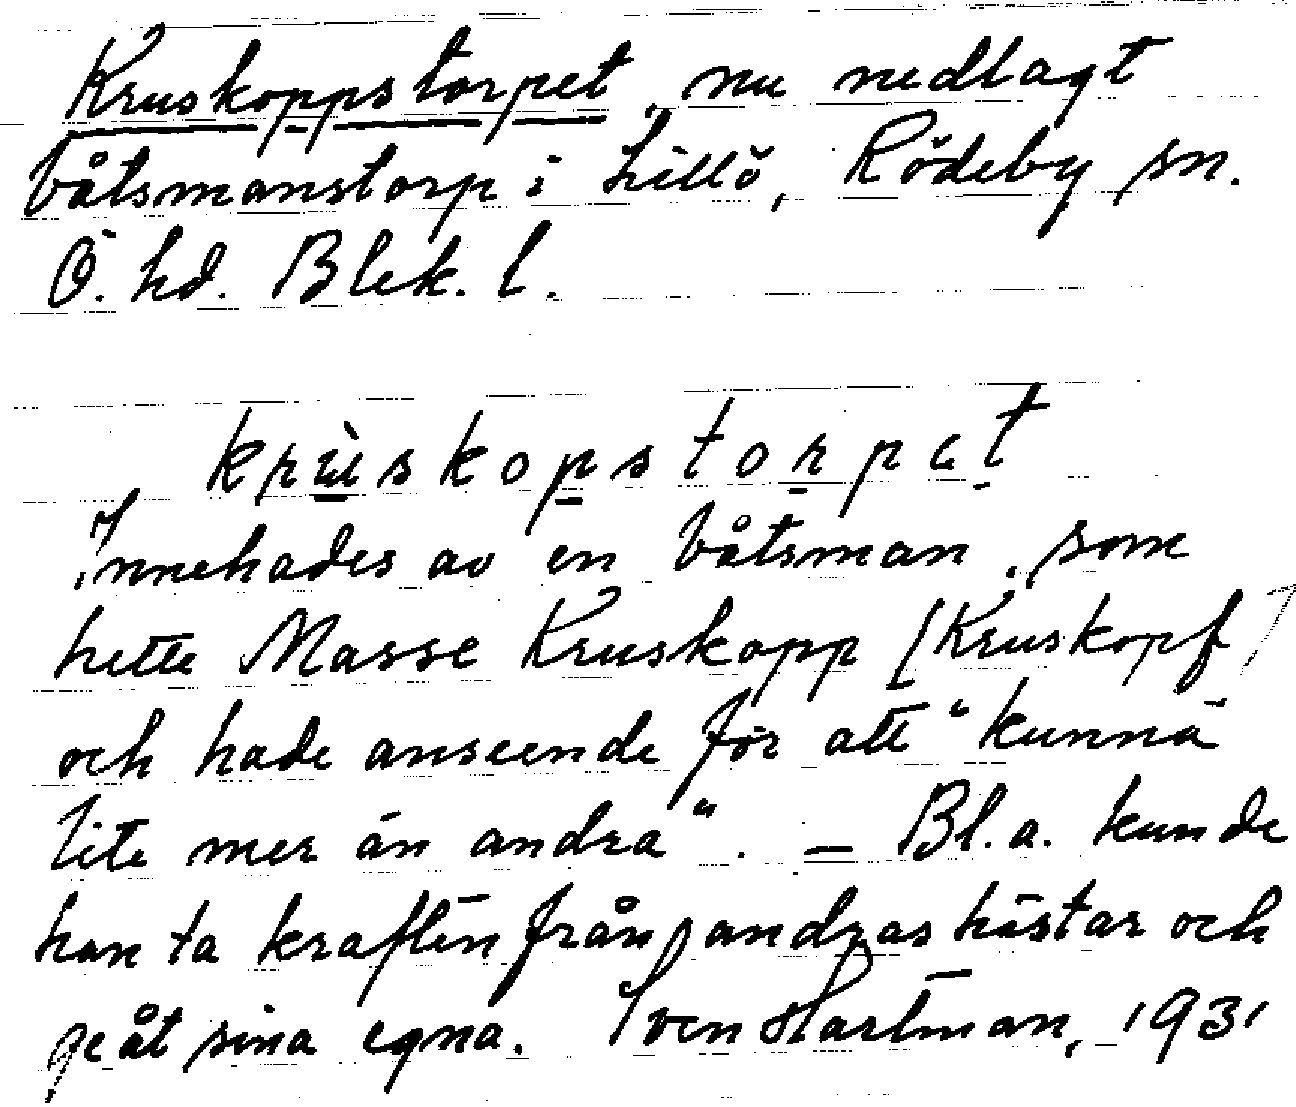 Kruskoppstorpet, nu nedlagt
båtsmanstorp i Lillö, Rödeby sn.
Ö. hd. Blek. l.
krùskopstorpet
Innehades av en båtsman, som
hette Masse Kruskopp [Kruskopf]
och hade anseende för att "kunna
lite mer än andra". — Bl.a. kunde
han ta kraften från andras hästar och
ge åt sina egna. Sven Hartman, 1931